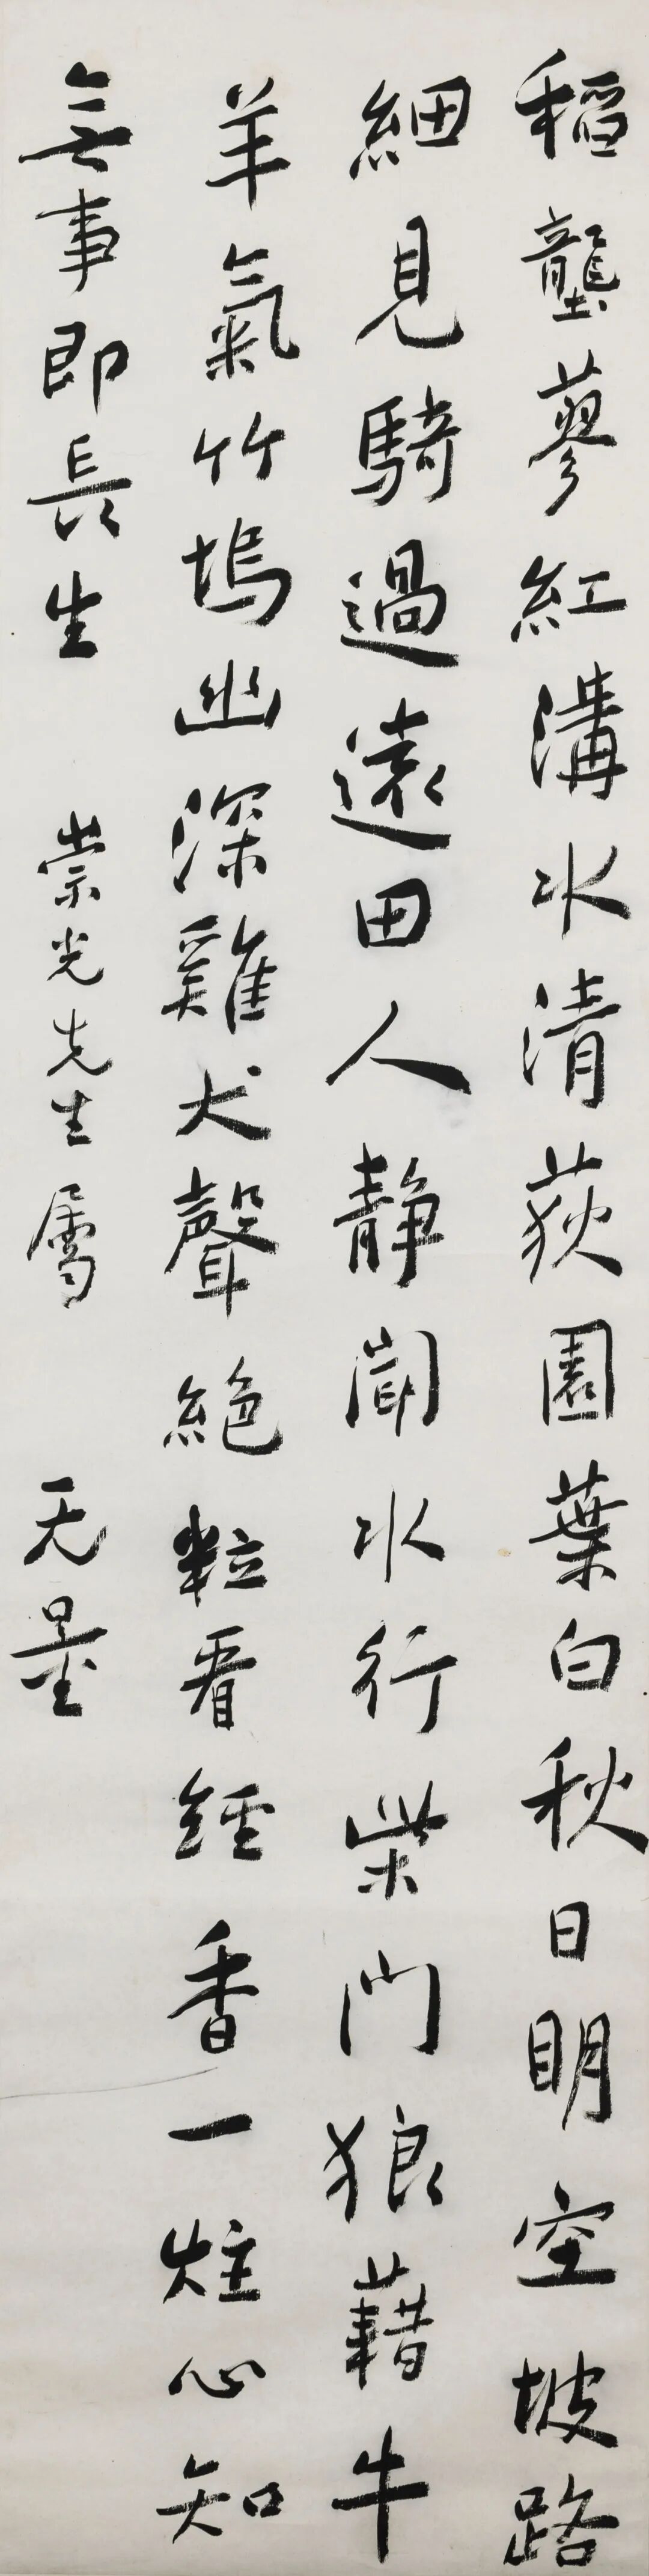 稻壟蓼紅溝水清荻園葉白秋日明空坡路
細見騎過遠田人靜聞水行柴門狼藉牛
羊氣竹塢幽深雞犬聲絕粒看經香一炷心知
無事即長生 崇光先生屬 无量